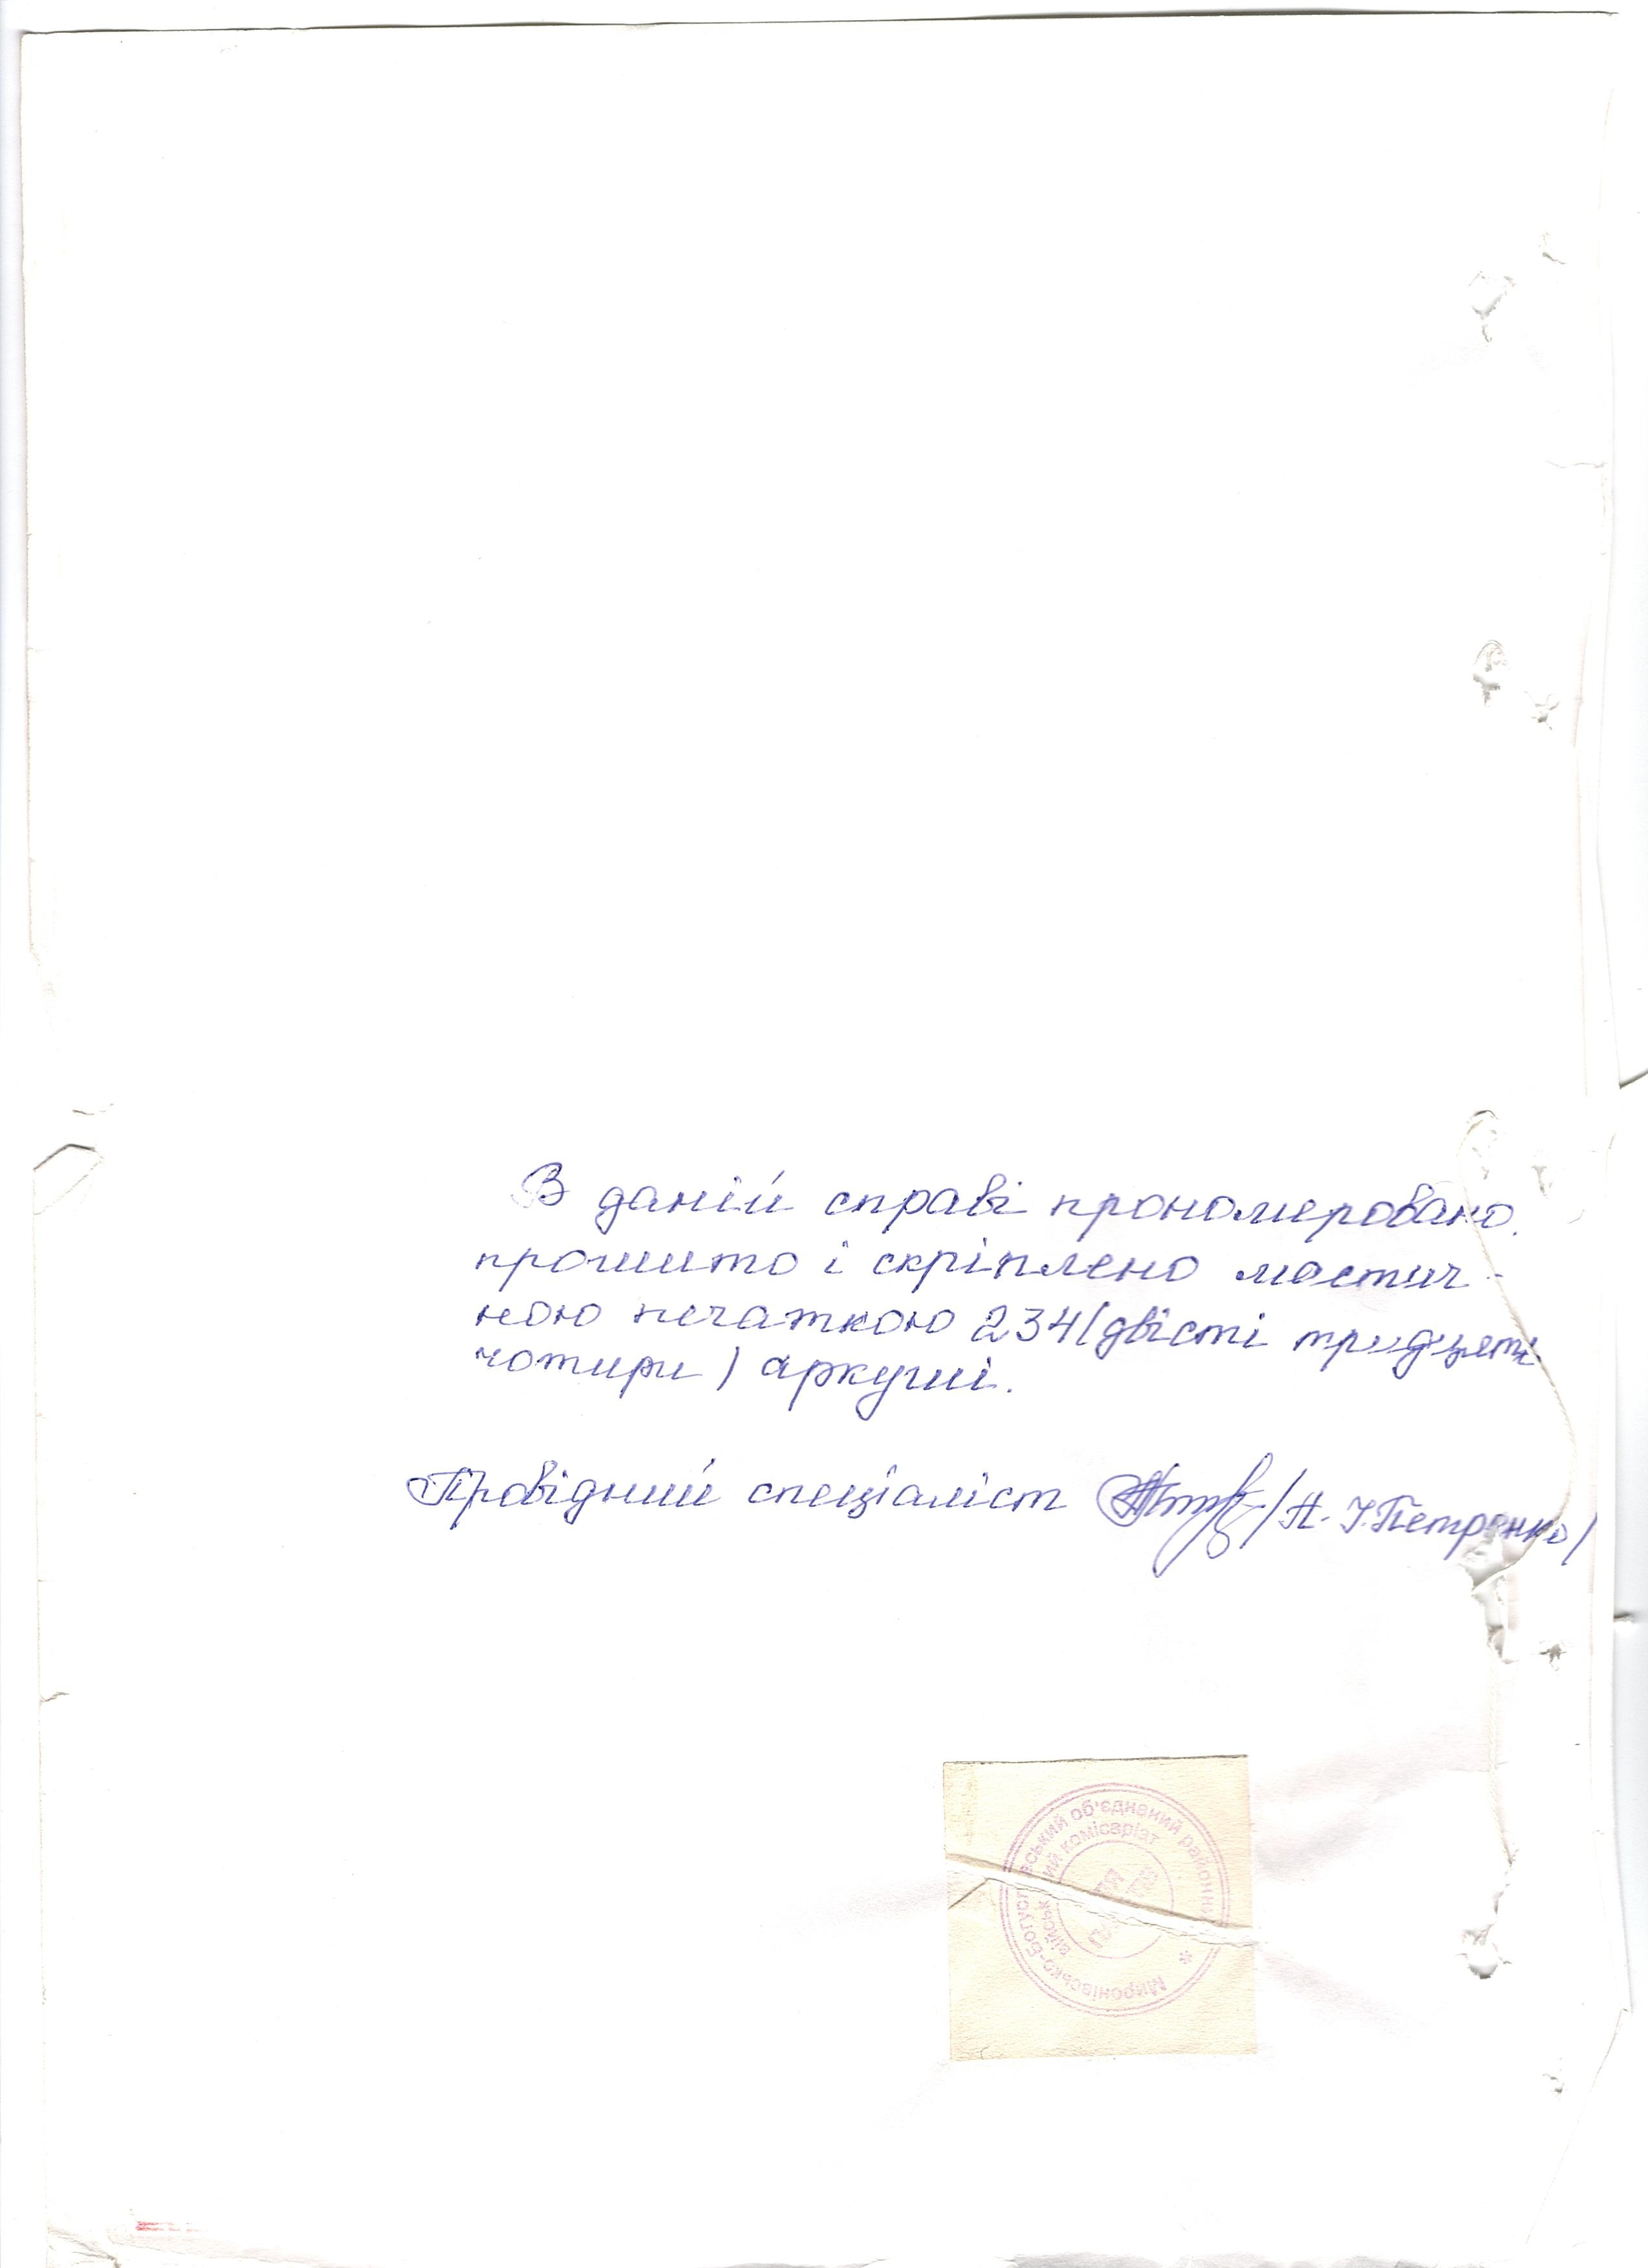 В даній справі прономеровано,
прошито і скріплено мастич-
ною печаткою 234 (двісті тридцять
чотири) аркуші.
Провідний спеціаліст /Н. І. Петренко/
Миронівсько-Богуславський об'єднаний районний
військовий комісаріат